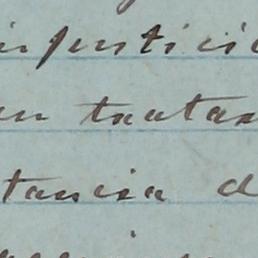 injustici
en tratar
tancia d